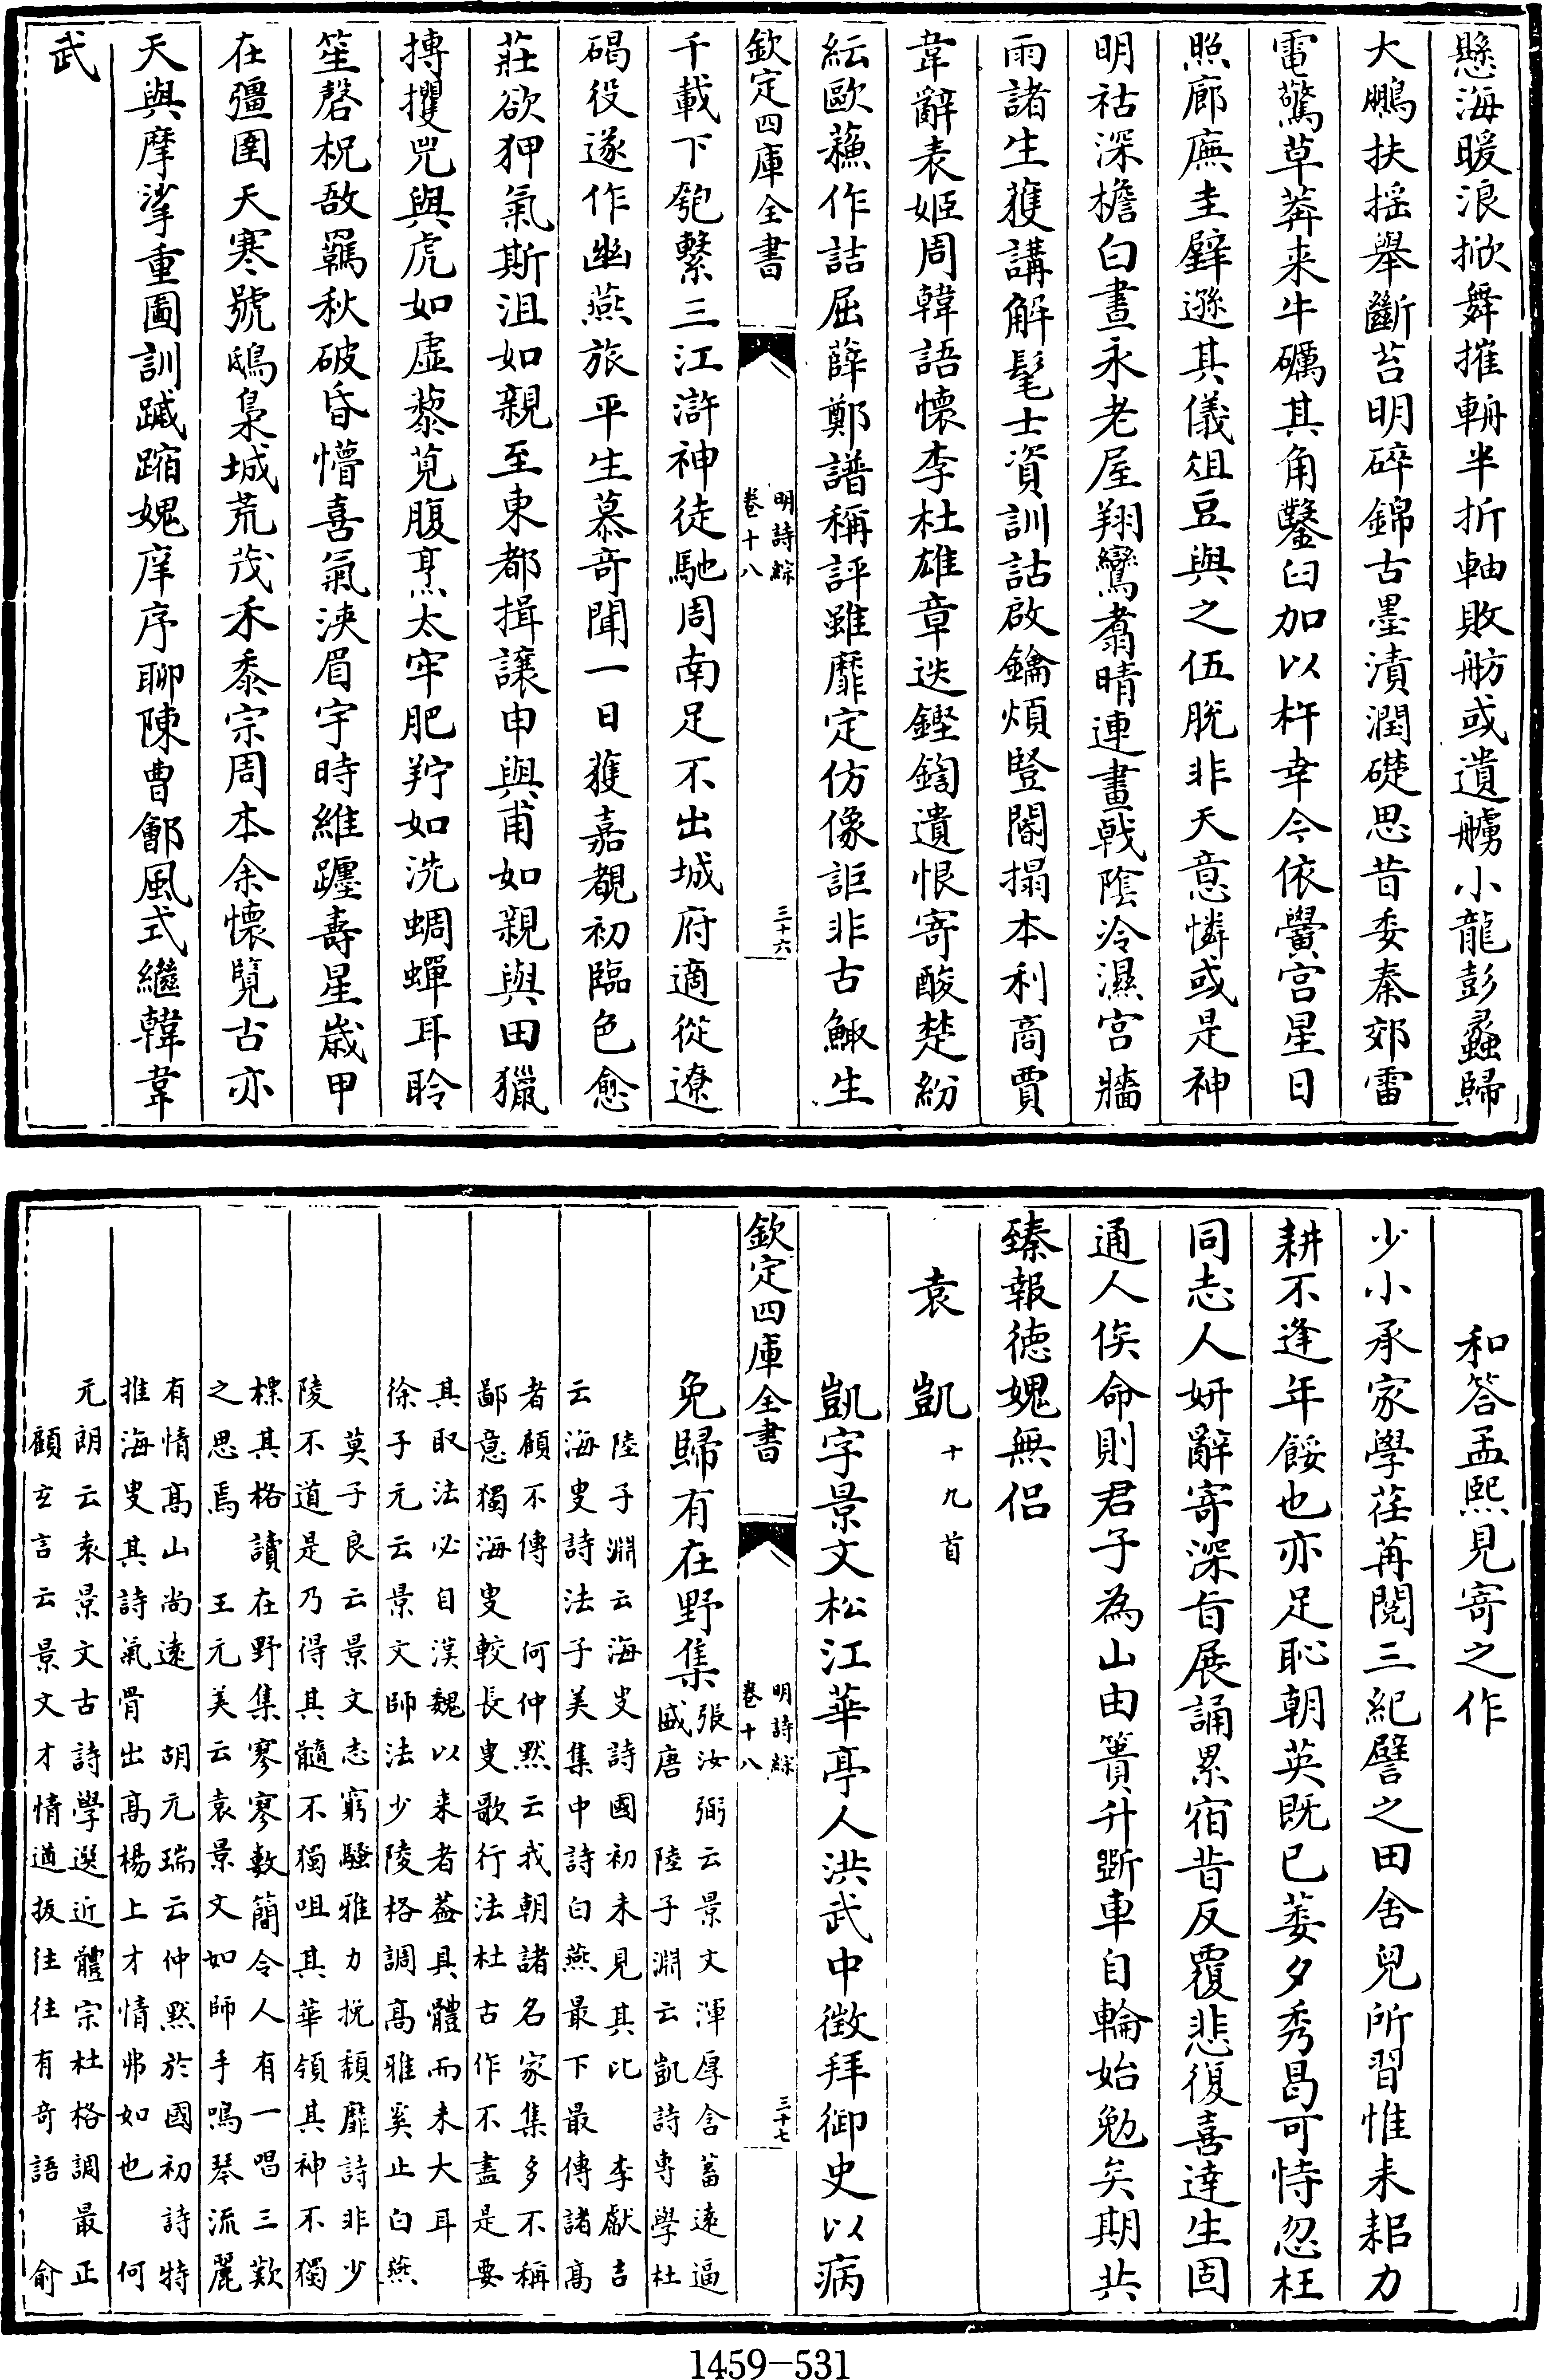 懸海暖浪掀舞摧輈半折軸敗舫或遺艣小龍彭蠡歸
大鵬扶揺舉斷苔明碎錦古墨漬潤礎思昔委秦郊雷
電驚草莽来牛礪其角鑿臼加以杵幸今依黌宫星日
照廊廡圭璧遜其儀俎豆與之伍脫非天意憐或是神
明祜深檐白晝永老屋翔鸞翥晴連畫戟陰冷濕宫牆
雨諸生獲講解髦士資訓詁啟鑰煩豎閽搨本利商賈
韋辭表姬周韓語懷李杜雄章迭鏗鍧遺恨寄酸楚紛
紜歐蘓作詰屈薛鄭譜稱評雖靡定仿像詎非古鯫生
欽定四庫全書
明詩綜
卷十八
三十六
千載下匏繫三江滸神徒馳周南足不出城府適從遼
碣役遂作幽燕旅平生慕竒聞一日獲嘉覩初臨色愈
莊欲狎氣斯沮如親至東都揖讓申與甫如親與田獵
搏攫兕與虎如虚藜莧腹烹太牢肥羜如洗蜩蟬耳聆
笙磬柷敔羈秋破昏懵喜氣浹眉宇時維躔壽星嵗甲
在彊圉天寒號鴟梟城荒茂禾黍宗周本余懷覽古亦
天與摩挲重圖訓踧踖媿庠序聊陳曹鄶風式繼韓韋
武
和答孟熙見寄之作
少小承家學荏苒閱三紀譬之田舍兒所習惟耒耜力
耕不逢年餒也亦足恥朝英既已萎夕秀曷可恃忽枉
同志人妍辭寄深旨展誦累宿昔反覆悲復喜達生固
通人俟命則君子為山由簣升斲車自輪始勉矣期共
臻報德媿無侣
袁凱十九首
凱字景文松江華亭人洪武中徴拜御史以病
欽定四庫全書
明詩綜
卷十八
三十七
免歸有在野集
張汝弼云景文渾厚含蓄遠逼
盛唐 陸子淵云凱詩專學杜
陸子淵云海叟詩國初未見其比 李獻吉
云海叟詩法子美集中詩白燕最下最傳諸髙
者顧不傳 何仲黙云我朝諸名家集多不稱
鄙意獨海叟較長叟歌行法杜古作不盡是要
其取法必自漢魏以来者葢具體而未大耳
徐子元云景文師法少陵格調髙雅奚止白燕
莫子良云景文志窮騷雅力挽頽靡詩非少
陵不道是乃得其髓不獨咀其華領其神不獨
標其格讀在野集寥寥數簡令人有一唱三歎
之思焉 王元美云袁景文如師手鳴琴流麗
有情髙山尚遠 胡元瑞云仲黙於國初詩特
推海叟其詩氣骨出髙楊上才情弗如也 何
元朗云袁景文古詩學選近體宗杜格調最正
顧玄言云景文才情遒拔往往有竒語 俞
1459-531